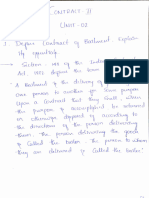 CONTRACT II
UNIT-02
1. Define Contract of Bailment. Explain
its
→ Section - 148 of the Indian
Act, 1872 defines the term
A Bailment is the delivery of
one person to another for some purpose
Upon a contract that they shall when
the purpose is accomplished be returned
or otherwise disposed of according to
the directions of the person delivering
them. The person delivering the goods
is Called the Bailor. The person to whom
they are delivered is Called the Bailee.